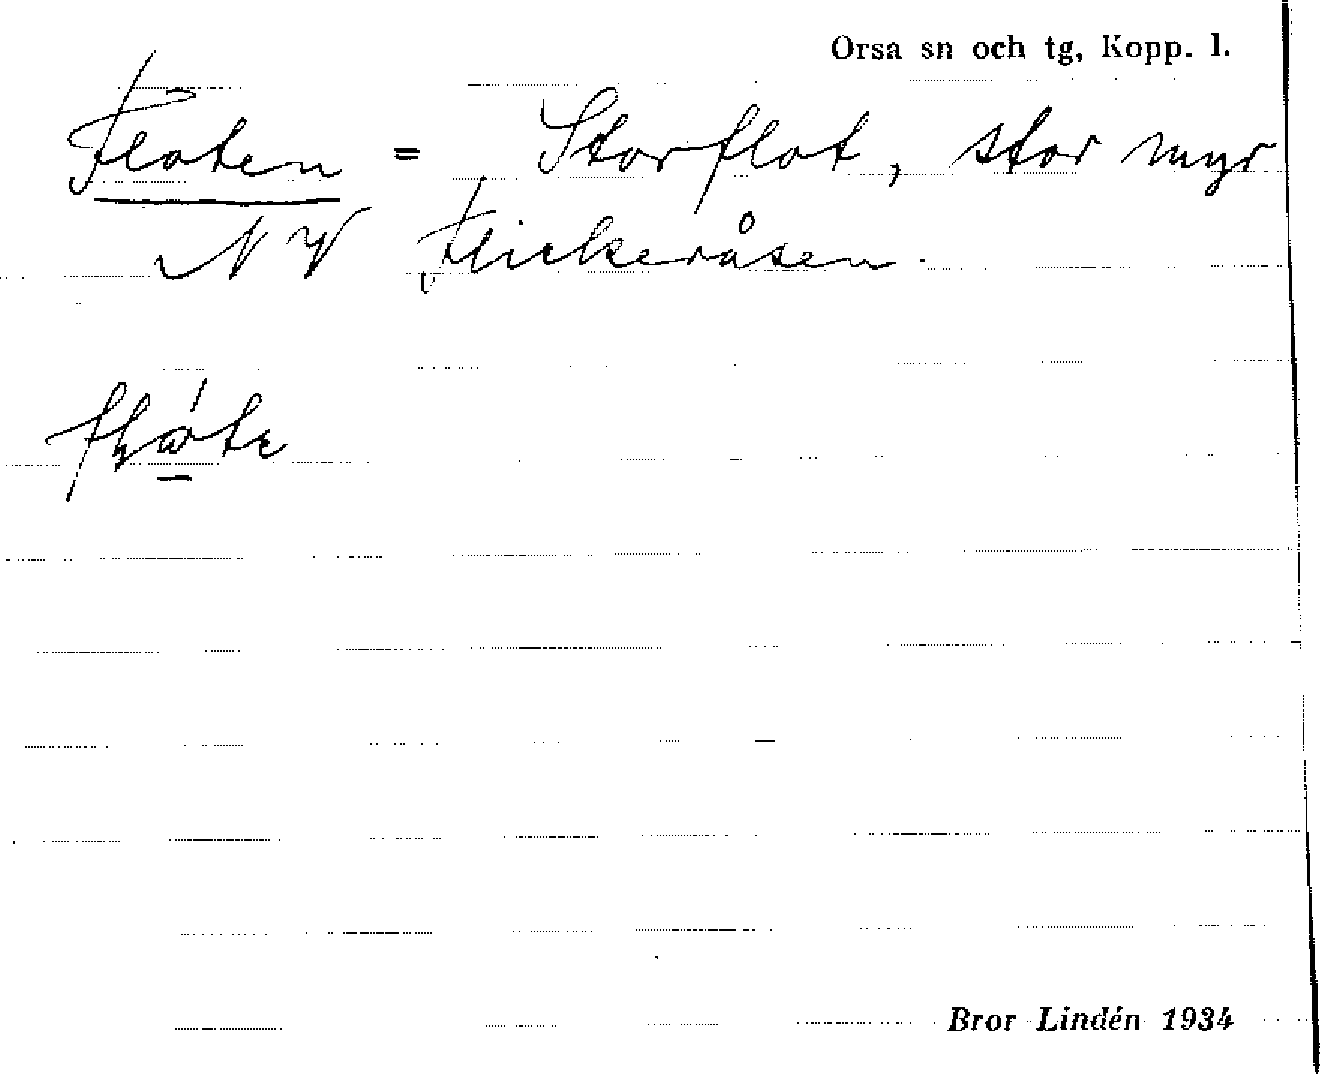 Orsa sn och tg, Kopp. l.
Floten = Storflot, stor myr
NV Flickeråsen.
Bror Lindén 1934